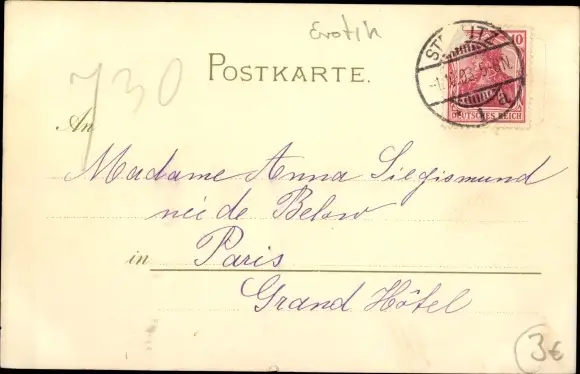 Erotik
730
POSTKARTE.
10
DEUTSCHES REICH
An
Madame Anna Siegismund
née de Below
in Paris
Grand Hôtel
3€